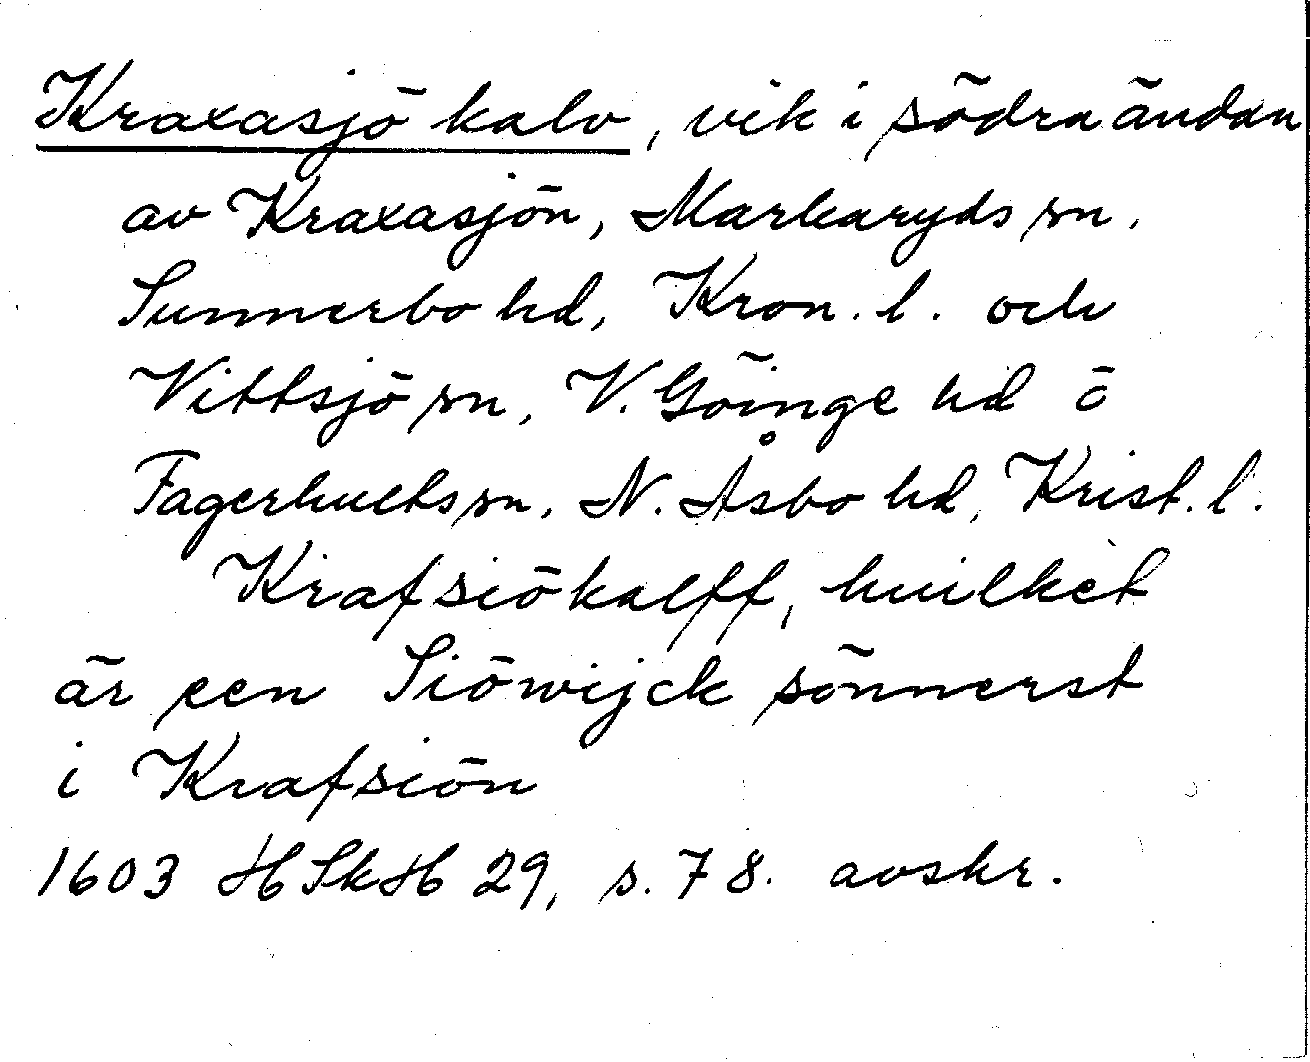 Kraxasjö kalv, vik i södra ändan
av Kraxasjön, Markaryds sn,
Sunnerbo hd, Kron. l. och
Vittsjö sn, V. Göinge hd o
Fagerhults sn, N. Åsbo hd, Krist. l.
Krafsiökalff, huilket
är een Siöwijck sönnerst
i Krafsiön
1603 HSkH 29, s. 78. avskr.